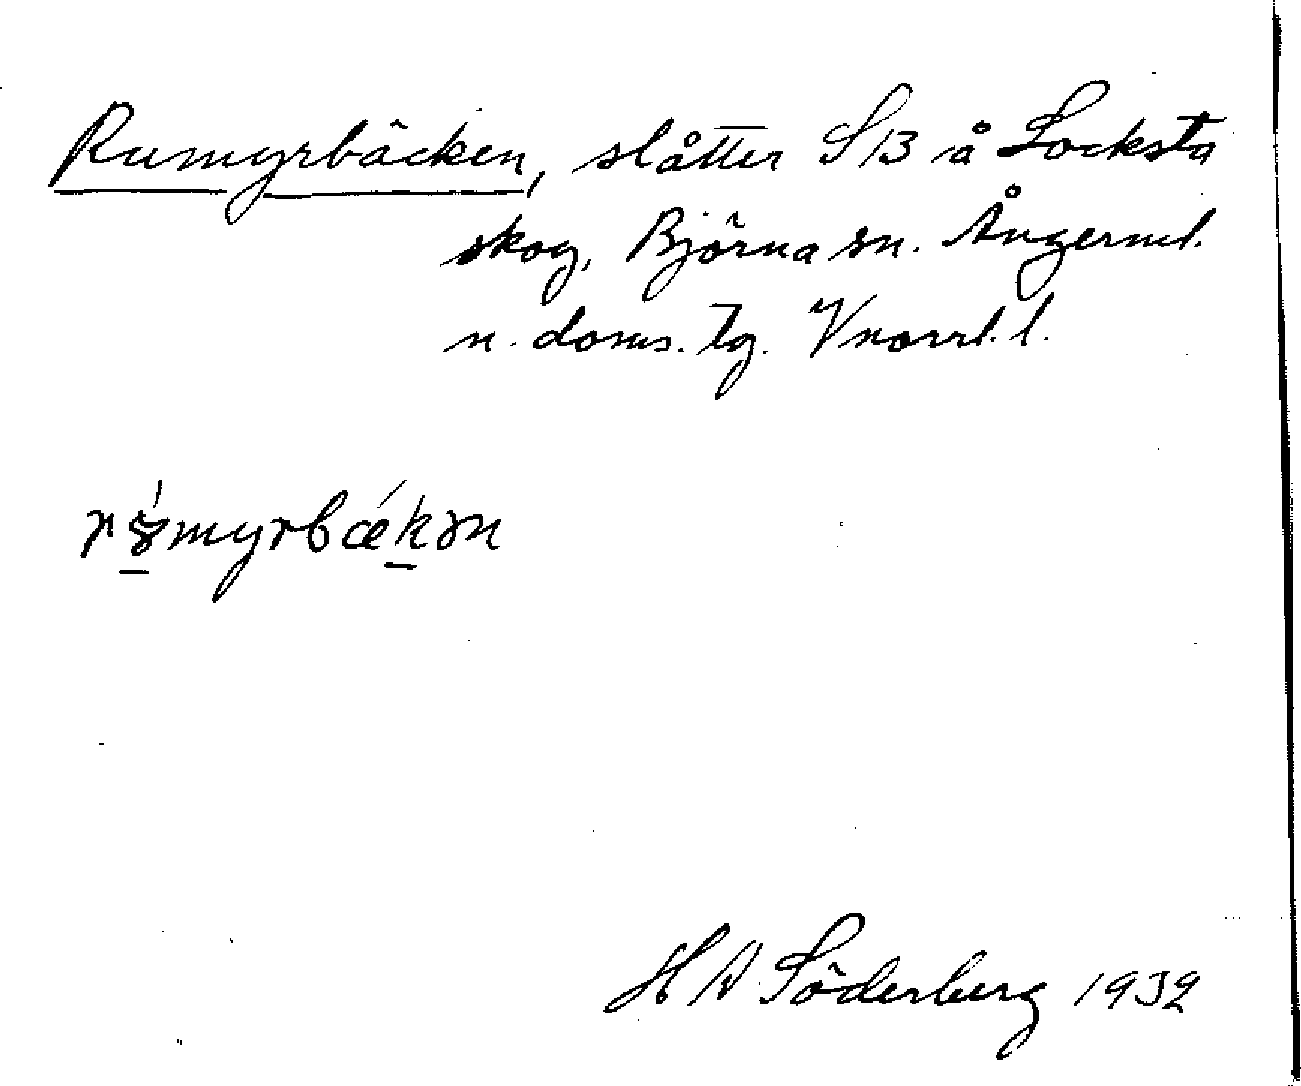 Rumyrbäcken, slåtter S13 å Locksta
skog, Björna sn. Ångerml.
n. doms. tg. Vnorrl. l.
rɤ́myrbǽkən
H A Söderberg 1932